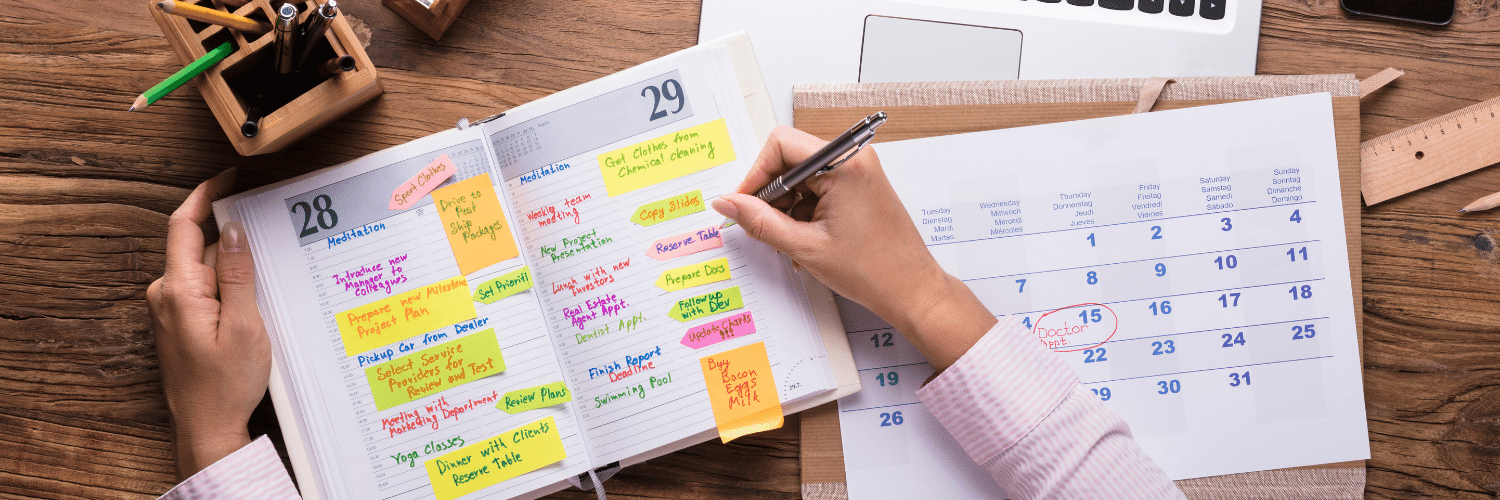 28
Sport Clothes
Drive to
Post
Ship
Packages
Meditation
Introduce new
Manager to
colleagues
Set Priority
Prepare new Milestone
Project Plan
Pickup Car from Dealer
Select Service
Providers for
Review and Test
Meeting with
Marketing Department
Review Plans
Yoga Classes
Dinner with Clients
Reserve Table
29
August
Meditation
Get Clothes from
Chemical cleaning
Weekly team
meeting
Copy Slides
New Project
Presentation
Reserve Table
Lunch with new
Investors
Prepare Docs
Real Estate
Agent Appt.
Follow up
with Dev
Dentist Appt.
Update Charts
!!!
Finish Report
Deadline
Swimming Pool
Buy
Bacon
Eggs
Milk
Tuesday Wednesday Thursday Friday Saturday Sunday
Dienstag Mittwoch Donnerstag Freitag Samstag Sonntag
Mardi Mercredi Jeudi Vendredi Samedi Dimanche
Martes Miércoles Jueves Viernes Sábado Domingo
1 2 3 4
7 8 9 10 11
15 16 17 18
Doctor
Appt.
12 22 23 24 25
19 30 31
26